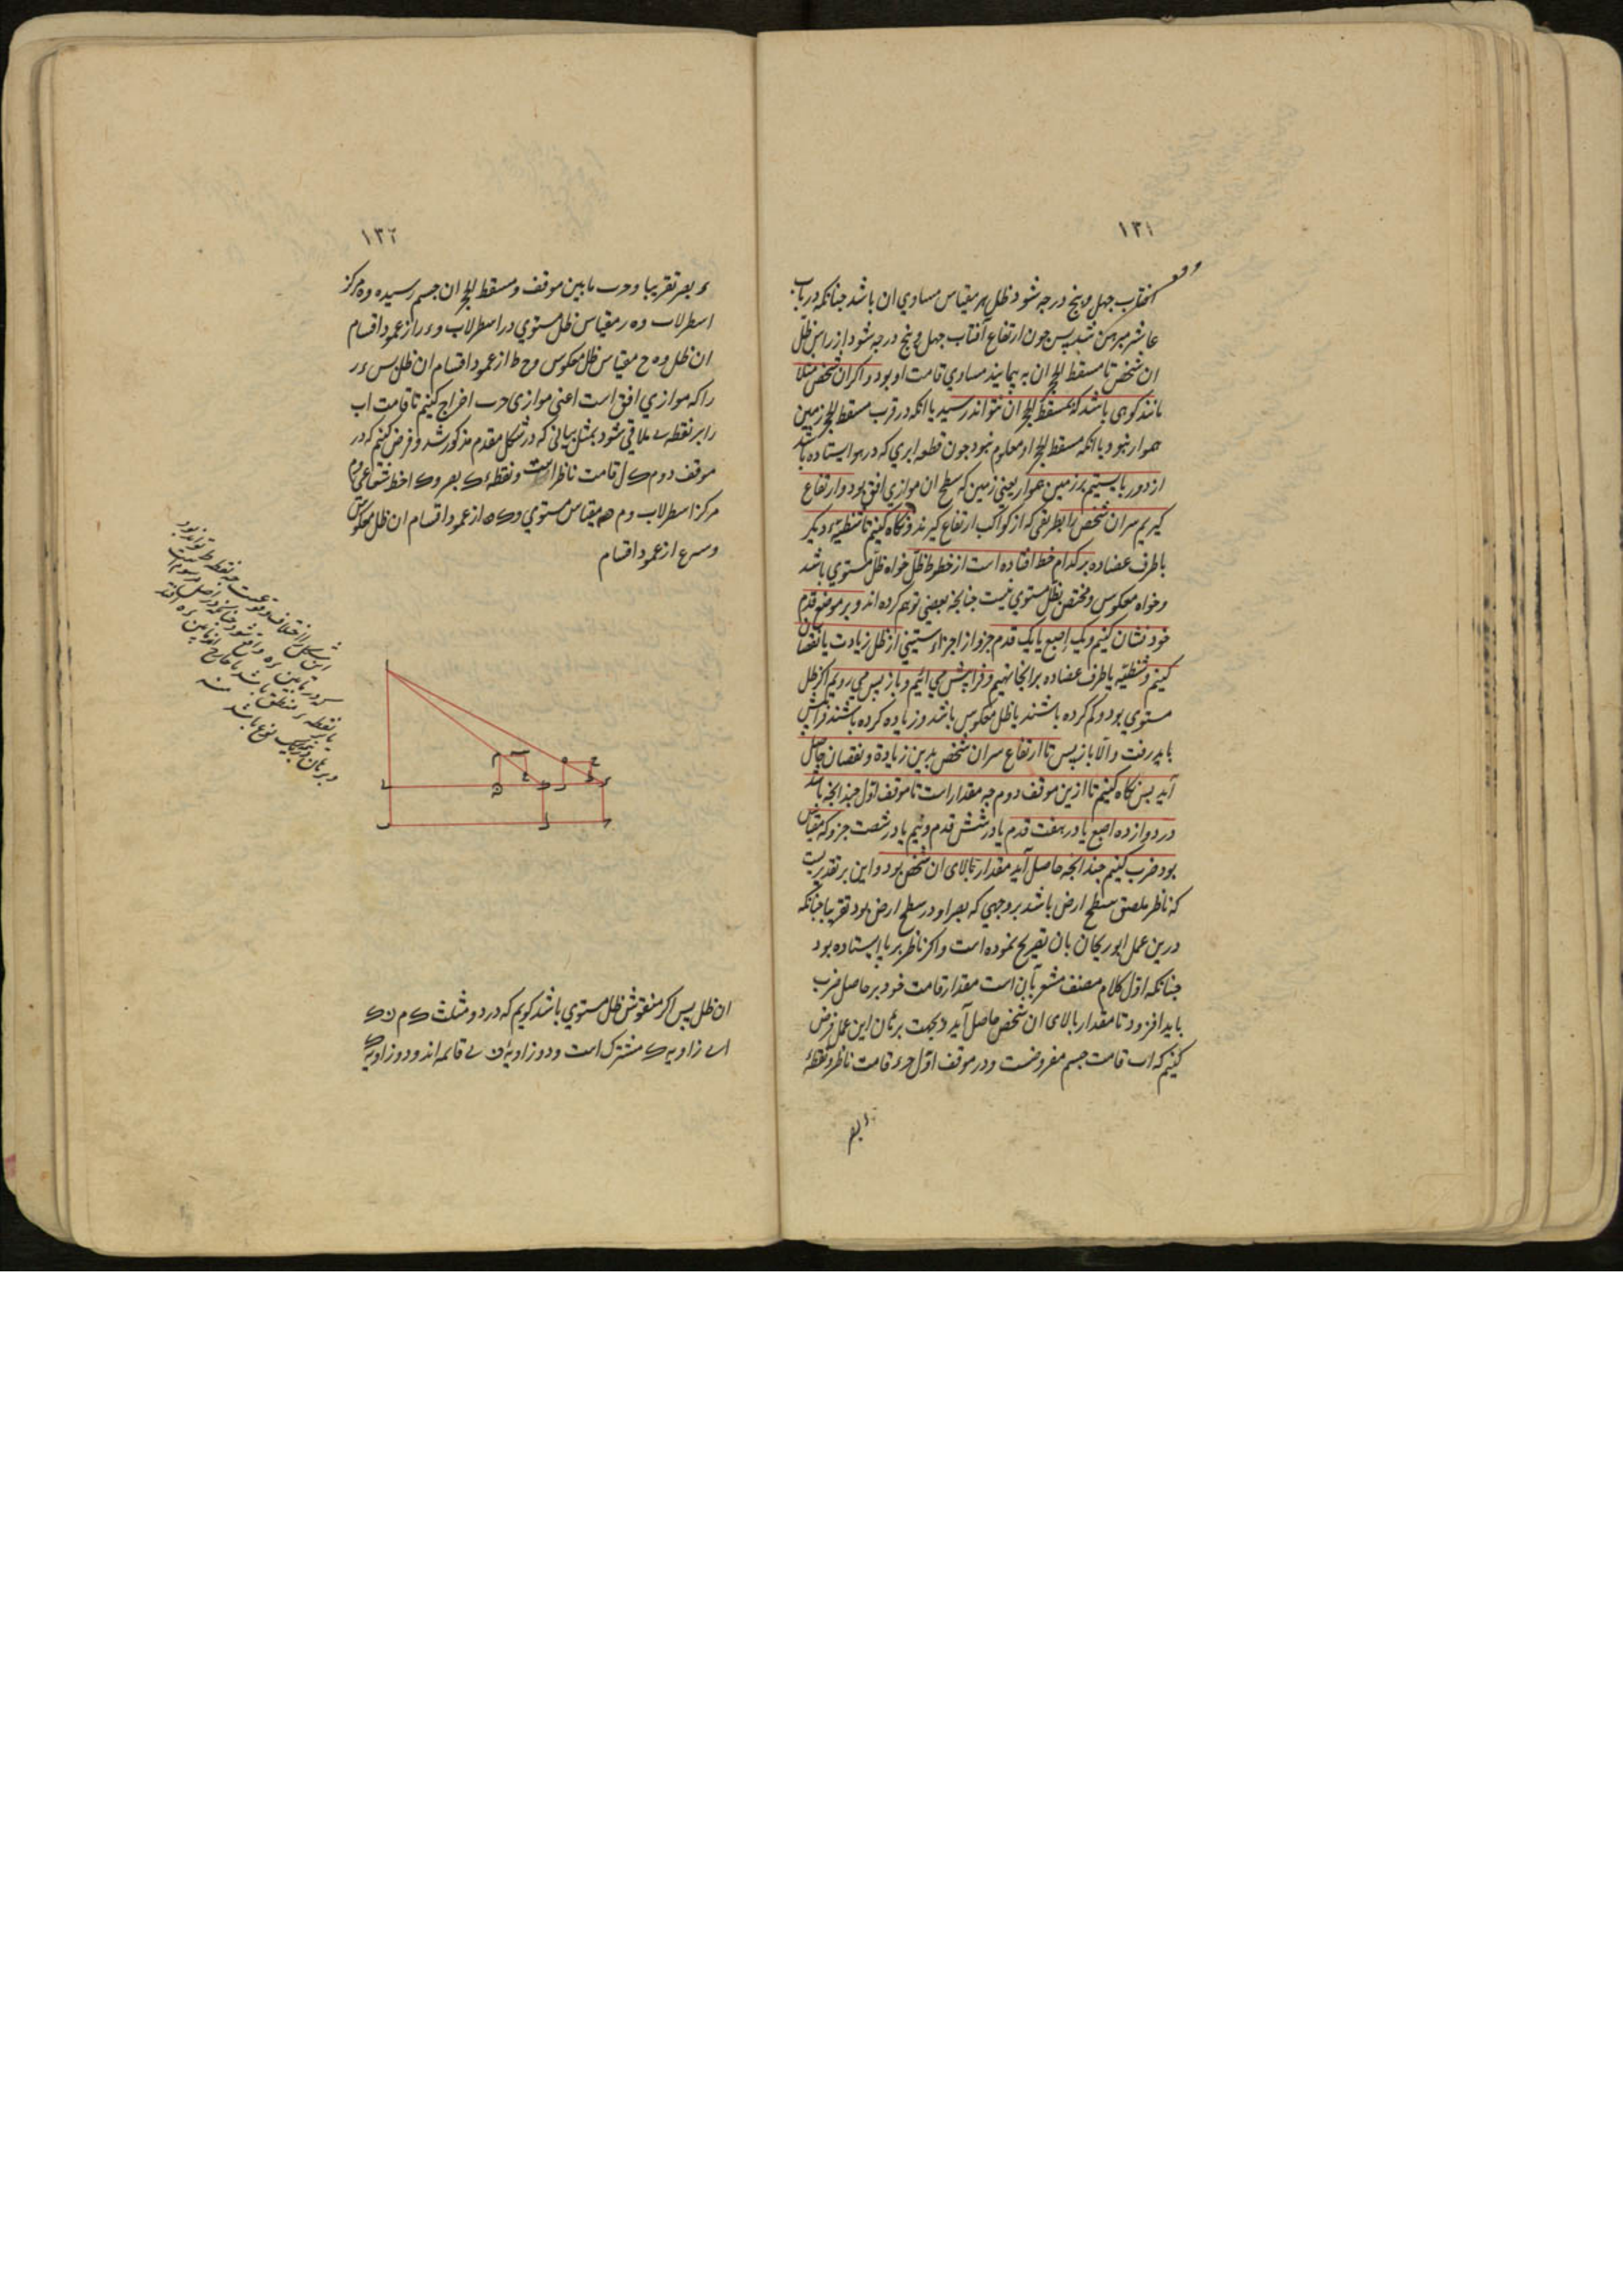 ۱۳۱
افتاب جهل و پنج درجه شود ظل هر مقیاس مساوي ان باشد جنانکه در باب
عاشر مبرهن شد پس جون ارتفاع آفتاب جهل و پنج درجه شود از راس ظل
ان شخص تا مسقط الحجر ان به پیمایند مساوي قامت او بود و اکر ان شخص مثلا
مانند کوهی باشد که بمسقط الحجر ان نتواند رسید یا انکه در قرب مسقط الحجر زمین
هموار نبود یا انکه مسقط الحجر او معلوم نبود جون قطعه ابری که در هوا ایستاده باشد
از دور بایستیم بر زمین هموار یعنی زمین که سطح ان موازي افق بود و ارتفاع
کیریم سر ان شخص را بطریقی که از کواکب ارتفاع کیرند و نکاه کنیم تا شظیهٔ دیکر
یا طرف عضاده بر کدام خط افتاده است از خطوط ظل خواه ظل مستوي باشد
و خواه معکوس و مختص بظل مستوي نیست جنانجه بعضی توهم کرده اند و بر موضع قدم
خود نشان کنیم و یک اصبع یا یک قدم جزو از اجزاء ستیني از ظل زیادت یا نقصان
کنیم و شظیه یا طرف عضاده بر انجا نهیم و فرا پیش می ائیم و باز پس می رویم اکر ظل
مستوي بود و کم کرده باشند یا ظل معکوس باشد و زیاده کرده باشند فرا پیش
باید رفت و الا باز پس تا ارتفاع سر ان شخص بدین زیادة و نقصان حاصل
آید پس نکاه کنیم تا ازین موقف دوم جه مقدار است تا موقف اول جندانجه باشد
در دوازده اصبع یا در هفت قدم یا در شش قدم و نیم یا در شصت جزو که مقیاس
بود ضرب کنیم جندانجه حاصل آید مقدار بالای ان شخص بود و این بر تقدیریست
که ناظر ملصق بسطح ارض باشد بر وجهي که بصر او در سطح ارض بود تقریبا جنانکه
درین عمل ابوریحان بان تصریح نموده است و اکر ناظر بر پا ایستاده بود
جنانکه اول کلام مصنف مشعر بآن است مقدار قامت خود بر حاصل ضرب
باید افزود تا مقدار بالای ان شخص حاصل آید و بجهت برهان این عمل فرض
کنیم که اب قامت جسم مفروضست و در موقف اول حء قامت ناظر و نقطهٔ
ء بصر
۱۳۲
ء بصر تقریبا و حب ما بین موقف و مسقط الحجر ان جسم رسیده و ه مرکز
اسطرلاب و ه ر مقیاس ظل مستوي در اسطرلاب و ء ر از عمود اقسام
ان ظل و ه ح مقیاس ظل معکوس و ح ط از عمود اقسام ان ظل پس ء ر
را که موازي افق است اعني موازی حب اخراج کنیم تا قامت اب
را بر نقطه ی ملاقي شود بمثل بیانی که در شکل مقدم مذکور شد و فرض کنیم که در
موقف دوم ک ل قامت ناظر است و نقطه ک بصر و ک ا خط شعاعي و م
مرکز اسطرلاب و م ن مقیاس مستوي و ک ن از عمود اقسام ان ظل معکوس
و س ع از عمود اقسام
ان ظل پس اکر منقوش ظل مستوي باشد کویم که در دو مثلث ک م ن ک
ا ی زاویه ک مشترک است و دو زاویه ن ی قائمه اند و دو زاویه